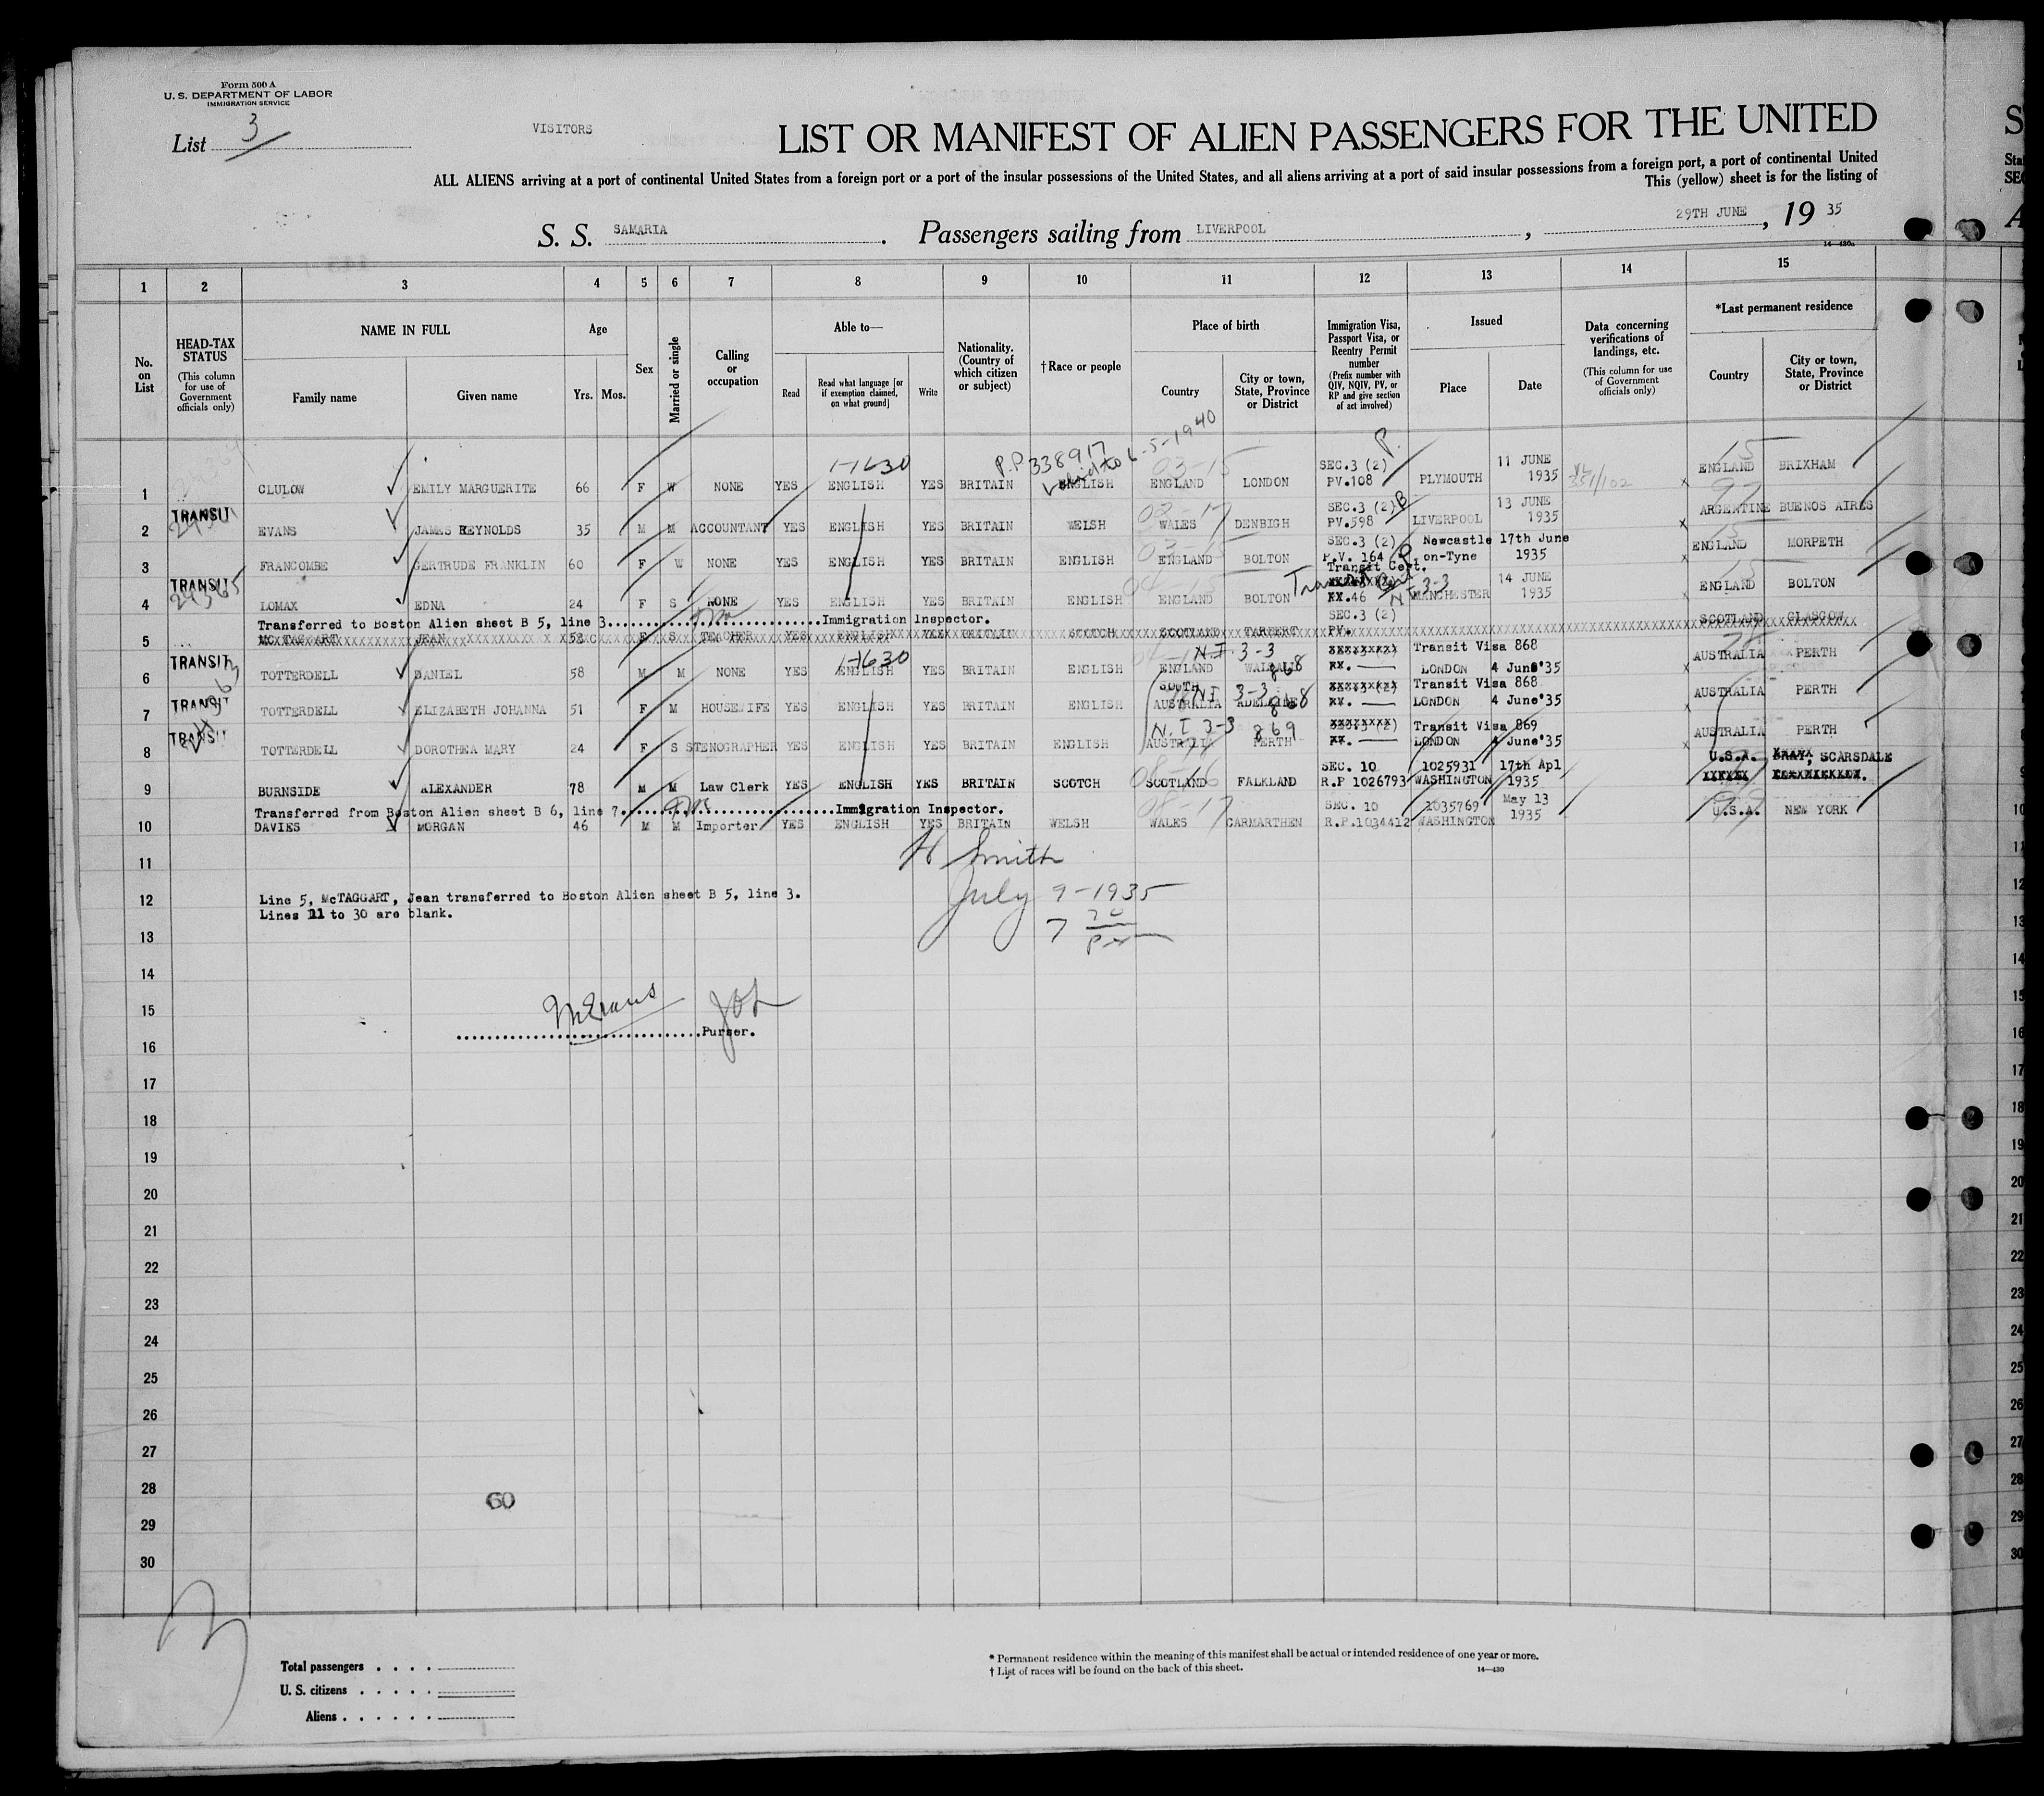 Form 500 A
U. S. DEPARTMENT OF LABOR
IMMIGRATION SERVICE
List 3
VISITORS
LIST OR MANIFEST OF ALIEN PASSENGERS FOR THE UNITED
ALL ALIENS arriving at a port of continental United States from a foreign port or a port of the insular possessions of the United States, and all aliens arriving at a port of said insular possessions from a foreign port, a port of continental United
This (yellow) sheet is for the listing of
S. S. SAMARIA. Passengers sailing from LIVERPOOL, 29TH JUNE, 19 35
14—430a
1 2 3 4 5 6 7 8 9 10 11 12 13 14 15
No. on List
HEAD-TAX STATUS (This column for use of Government officials only)
NAME IN FULL
Family name Given name
Age
Yrs. Mos.
Sex
Married or single
Calling or occupation
Able to—
Read Read what language [or if exemption claimed, on what ground] Write
Nationality. (Country of which citizen or subject)
†Race or people
Place of birth
Country City or town, State, Province or District
Immigration Visa, Passport Visa, or Reentry Permit number (Prefix number with QIV, NQIV, PV, or RP and give section of act involved)
Issued
Place Date
Data concerning verifications of landings, etc. (This column for use of Government officials only)
*Last permanent residence
Country City or town, State, Province or District
1-1630 P.P 338917 valid to 6-5-1940 03-15 P. 15
1 CLULOW EMILY MARGUERITE 66 F W NONE YES ENGLISH YES BRITAIN ENGLISH ENGLAND LONDON SEC.3 (2) PV.108 PLYMOUTH 11 JUNE 1935 351/102 ENGLAND BRIXHAM
2 TRANSIT EVANS JAMES REYNOLDS 35 M M ACCOUNTANT YES ENGLISH YES BRITAIN WELSH WALES DENBIGH SEC.3 (2) PV.598 LIVERPOOL 13 JUNE 1935 ARGENTINE BUENOS AIRES
3 FRANCOMBE GERTRUDE FRANKLIN 60 F W NONE YES ENGLISH YES BRITAIN ENGLISH ENGLAND BOLTON SEC.3 (2) P.V. 164 Newcastle on-Tyne 17th June 1935 ENGLAND MORPETH
4 TRANSIT 29365 LOMAX EDNA 24 F S NONE YES ENGLISH YES BRITAIN ENGLISH ENGLAND BOLTON Transit Cert. 46 N.I 3-3 MANCHESTER 14 JUNE 1935 ENGLAND BOLTON
Transferred to Boston Alien sheet B 5, line 3..............................Immigration Inspector.
5 McTAGGART JEAN 52 F S TEACHER YES ENGLISH YES BRITAIN SCOTCH SCOTLAND TARBERT SEC.3 (2) PV. SCOTLAND GLASGOW
1-1630 N.I. 3-3 868
6 TRANSIT TOTTERDELL DANIEL 58 M M NONE YES ENGLISH YES BRITAIN ENGLISH ENGLAND Transit Visa 868 LONDON 4 June'35 AUSTRALIA PERTH
7 TRANSIT TOTTERDELL ELIZABETH JOHANNA 51 F M HOUSEWIFE YES ENGLISH YES BRITAIN ENGLISH SOUTH AUSTRALIA ADELAIDE N.I 3-3 868 Transit Visa 868 LONDON 4 June'35 AUSTRALIA PERTH
8 TRANSIT TOTTERDELL DOROTHEA MARY 24 F S STENOGRAPHER YES ENGLISH YES BRITAIN ENGLISH AUSTRALIA PERTH N.I 3-3 869 Transit Visa 869 LONDON 4 June'35 AUSTRALIA PERTH
9 BURNSIDE ALEXANDER 78 M M Law Clerk YES ENGLISH YES BRITAIN SCOTCH SCOTLAND FALKLAND SEC. 10 R.P 1026793 1025931 WASHINGTON 17th Apl 1935 U.S.A. SCARSDALE
Transferred from Boston Alien sheet B 6, line 7..............................Immigration Inspector.
10 DAVIES MORGAN 46 M M Importer YES ENGLISH YES BRITAIN WELSH WALES CARMARTHEN SEC. 10 R.P.1034412 1035769 WASHINGTON May 13 1935 U.S.A. NEW YORK
11 H Smith
12 Line 5, McTAGGART, Jean transferred to Boston Alien sheet B 5, line 3. July 9-1935
Lines 11 to 30 are blank.
13 7 20 pm
14
15 MEvans
..............................Purser.
16
17
18
19
20
21
22
23
24
25
26
27
28
60
29
30
3
Total passengers . . . .
U. S. citizens . . . . .
Aliens . . . . . .
* Permanent residence within the meaning of this manifest shall be actual or intended residence of one year or more.
† List of races will be found on the back of this sheet.
14—430